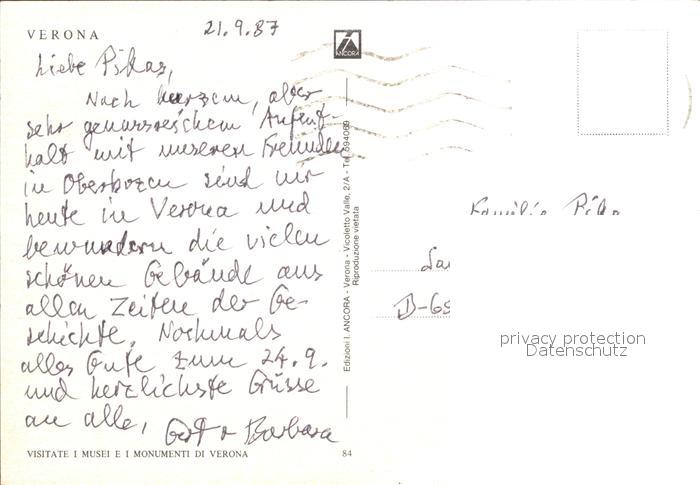 VERONA
21.9.87
ANCORA
Liebe Pikas,
Nach kurzem, aber
sehr genussreichem Aufent-
halt mit unseren Freunden
in Oberbozen sind wir
heute in Verona und
bewundern die vielen
schönen Gebäude aus
allen Zeiten der Ge-
schichte. Nochmals
alles Gute zum 24.9.
und herzlichste Grüsse
an alle,
Gert + Barbara
VISITATE I MUSEI E I MONUMENTI DI VERONA
84
Edizioni I. ANCORA - Verona - Vicoletto Valle, 2/A - Tel. 594069
Riproduzione vietata
Familie Pika
D-69
privacy protection
Datenschutz